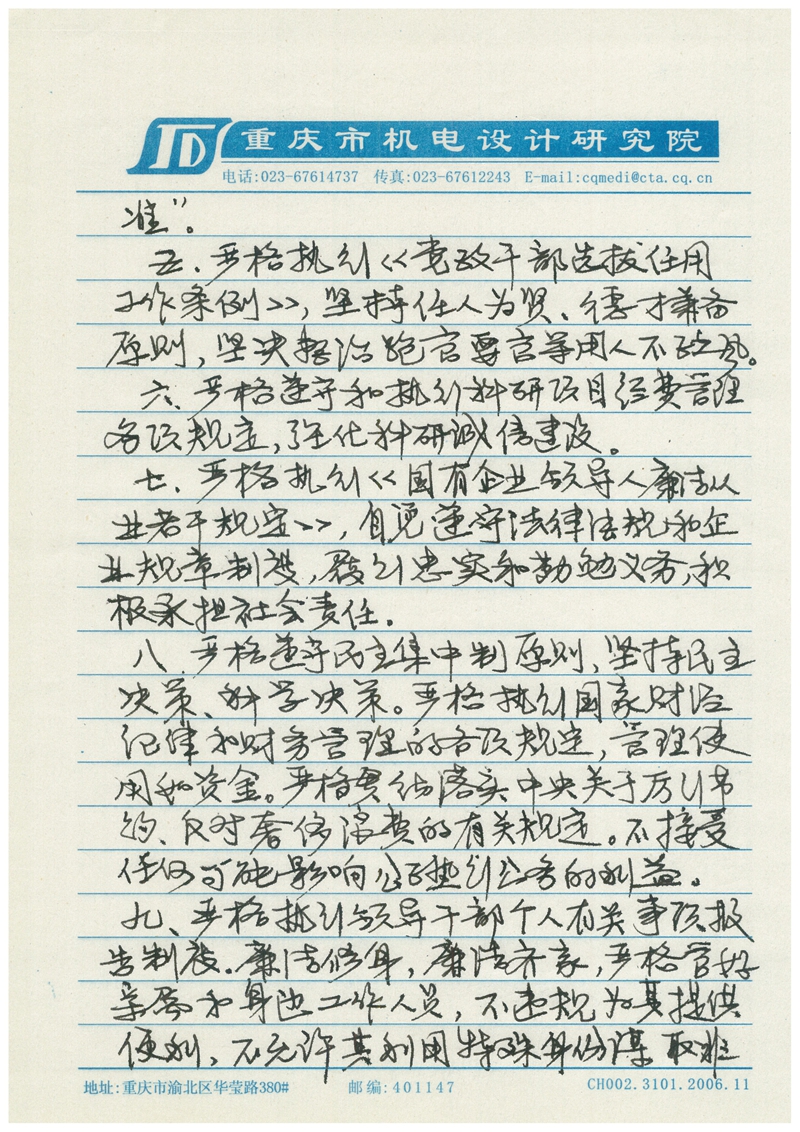 重庆市机电设计研究院
电话:023-67614737 传真:023-67612243 E-mail:cqmedi@cta.cq.cn
准"。
五、严格执行《党政干部选拔任用
工作条例》,坚持任人为贤、德才兼备
原则,坚决整治跑官要官等用人不正之风。
六、严格遵守和执行科研项目经费管理
各项规定,强化科研诚信建设。
七、严格执行《国有企业领导人廉洁从
业若干规定》,自觉遵守法律法规和企
业规章制度,履行忠实和勤勉义务,积
极承担社会责任.
八、严格遵守民主集中制原则,坚持民主
决策、科学决策。严格执行国家财经
纪律和财务管理的各项规定,管理使
用和资金。严格贯彻落实中央关于厉行节
约、反对奢侈浪费的有关规定。不接受
任何可能影响公正执行公务的利益。
九、严格执行领导干部个人有关事项报
告制度.廉洁修身,廉洁齐家,严格管好
亲属和身边工作人员,不违规为其提供
便利,不允许其利用特殊身份谋取非
地址:重庆市渝北区华莹路380# 邮编:401147 CH002.3101.2006.11